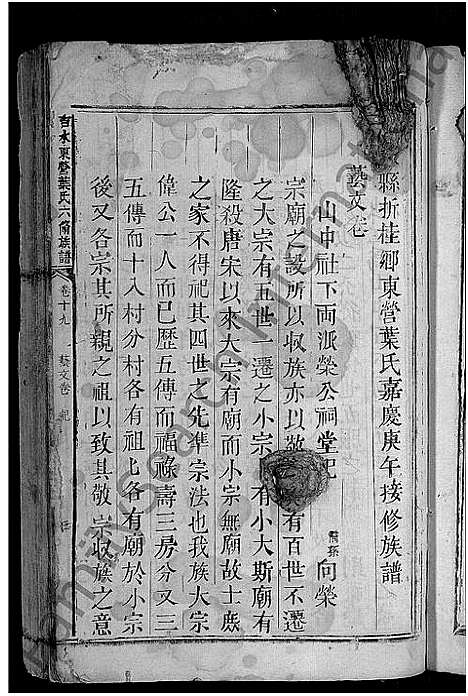 縣折桂鄉東營葉氏嘉慶庚午接修族譜
藝文卷
山中社下兩派榮公祠堂記 裔孫 向榮
宗廟之設所以収族亦以敬 有百世不遷
之大宗有五世一遷之小宗 有小大斯廟有
隆殺唐宋以來大宗有廟而小宗無廟故士庶
之家不得祀其四世之先準宗法也我族大宗
偉公一人而已歷五傳而福祿壽三房分又三
五傳而十入村分村各有祖匕各有廟於小宗
後又各宗其所親之祖以致其敬宗収族之意
白水東營葉氏六脩族譜
卷十九
藝文卷 記